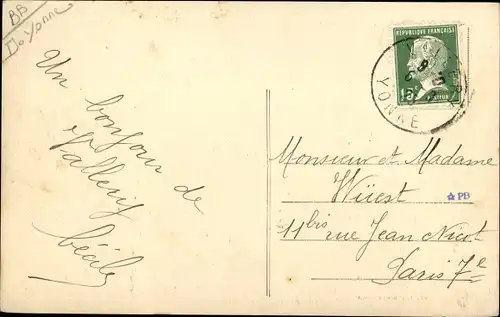 BB
Do Yonne
Un bonjour de
Vallery
Cécile
RÉPUBLIQUE FRANÇAISE
15c
PASTEUR
YONNE
Monsieur et Madame
Wüest
PB
11 bis rue Jean Nicot
Paris 7e